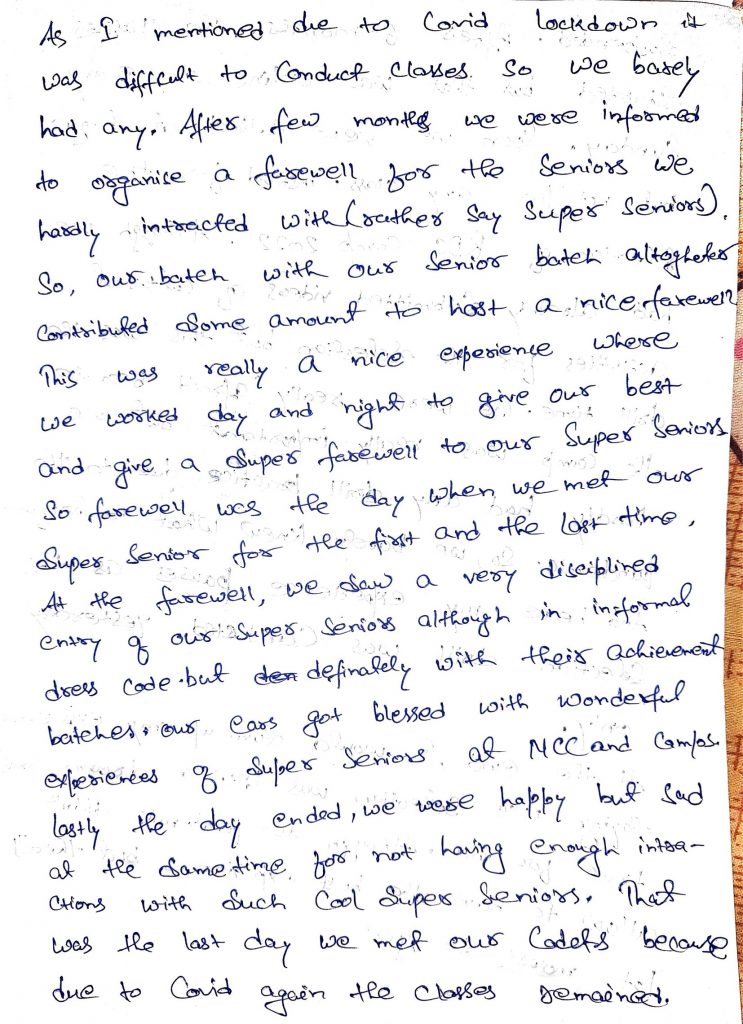 As I mentioned due to Covid lockdown it
was difficult to Conduct Classes. So we barely
had any. After few months we were informed
to organise a farewell for the Seniors we
hardly intracted with (rather Say Super Seniors).
So, our batch with our Senior batch altogheter
Contributed Some amount to host a nice farewell
This was really a nice experience where
we worked day and night to give our best
and give a Super farewell to our Super Seniors
So farewell was the day when we met our
Super Senior for the first and the last time.
At the farewell, we Saw a very disciplined
entry of our Super Seniors although in informal
dress Code but definately with their achievement
batches. our ears got blessed with wonderful
experiences of Super Seniors at NCC and Camps.
lastly the day ended, we were happy but Sad
at the Same time for not having enough intra-
ctions with Such Cool Super Seniors. That
was the last day we met our Cadets because
due to Covid again the Classes remained.